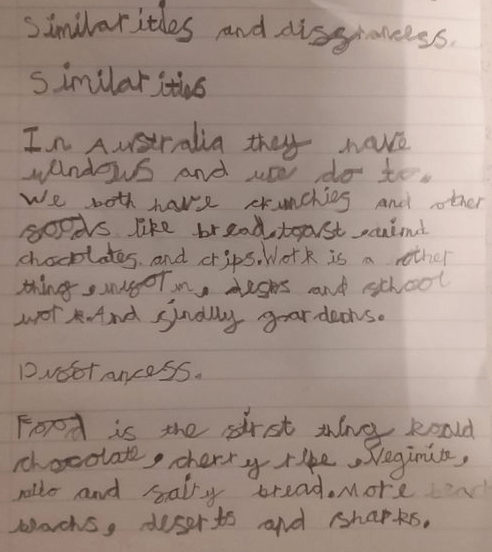 Similarities and
Similarities
In Australia they have
windows and we do to.
We both have crunchies and other
foods like bread, toast,
chocolates and crips. Work is a other
thing, desks and school
work. And finally gardechs.
Food is the first thing koald
chocolate, cherry ripe, Vegimite,
milo and salty bread. More
beachs, deserts and sharks.